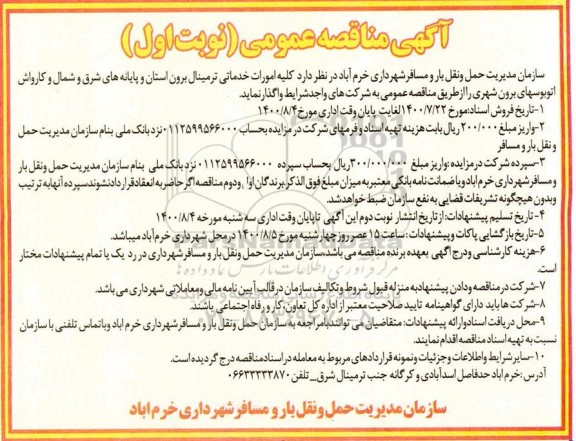 آگهی مناقصه عمومی (نوبت اول)
سازمان مدیریت حمل ونقل بار و مسافر شهرداری خرم آباد در نظر دارد کلیه امورات خدماتی ترمینال برون استان و پایانه های شرق و شمال و کارواش
اتوبوسهای برون شهری را از طریق مناقصه عمومی به شرکت های واجد شرایط واگذار نماید.
۱-تاریخ فروش اسناد:مورخ ۱۴۰۰/۷/۲۲ لغایت پایان وقت اداری مورخ ۱۴۰۰/۸/۴
۲-واریز مبلغ ۲۰۰/۰۰۰ ریال بابت هزینه تهیه اسناد و فرمهای شرکت در مزایده بحساب ۰۱۱۲۵۹۹۵۶۶۰۰۰ نزد بانک ملی بنام سازمان مدیریت حمل
و نقل بار و مسافر
۳-سپرده شرکت در مزایده :واریز مبلغ ۳۰۰/۰۰۰/۰۰۰ ریال بحساب سپرده ۰۱۱۲۵۹۹۵۶۶۰۰۰ نزد بانک ملی بنام سازمان مدیریت حمل ونقل بار
و مسافر شهرداری خرم آباد و یا ضمانت نامه بانکی معتبر به میزان مبلغ فوق الذکر برندگان اول ودوم مناقصه اگر حاضر به انعقاد قرارداد نشوند سپرده آنها به ترتیب
وبدون هیچگونه تشریفات قضایی به نفع سازمان ضبط خواهد شد.
۴-تاریخ تسلیم پیشنهادات: از تاریخ انتشار نوبت دوم این آگهی تا پایان وقت اداری سه شنبه مورخه ۱۴۰۰/۸/۴
۵-تاریخ بازگشایی پاکات و پیشنهادات : ساعت ۱۵ عصر روز چهارشنبه مورخ ۱۴۰۰/۸/۵ در محل شهرداری خرم آباد میباشد.
۶-هزینه کارشناسی و درج آگهی بعهده برنده مناقصه می باشد،سازمان مدیریت حمل ونقل بار و مسافر شهرداری در رد یک یا تمام پیشنهادات مختار
است.
۷-شرکت در مناقصه و دادن پیشنهاد به منزله قبول شروط و تکالیف سازمان در قالب آیین نامه مالی و معاملاتی شهرداری می باشد.
۸-شرکت ها باید دارای گواهینامه تایید صلاحیت معتبر از اداره کل تعاون، کار و رفاه اجتماعی باشند.
۹-محل دریافت اسناد وارائه پیشنهادات: متقاضیان می توانند با مراجعه به سازمان حمل ونقل بار و مسافر شهرداری خرم آباد و یا تماس تلفنی با سازمان
نسبت به تهیه اسناد مناقصه اقدام نمایند.
۱۰-سایر شرایط و اطلاعات و جزئیات و نمونه قراردادهای مربوط به معامله در اسناد مناقصه درج گردیده است.
آدرس: خرم آباد حدفاصل اسدآبادی و کرگانه جنب ترمینال شرق_تلفن ۰۶۶۳۳۳۳۳۸۷۰
سازمان مدیریت حمل و نقل بار و مسافر شهرداری خرم اباد